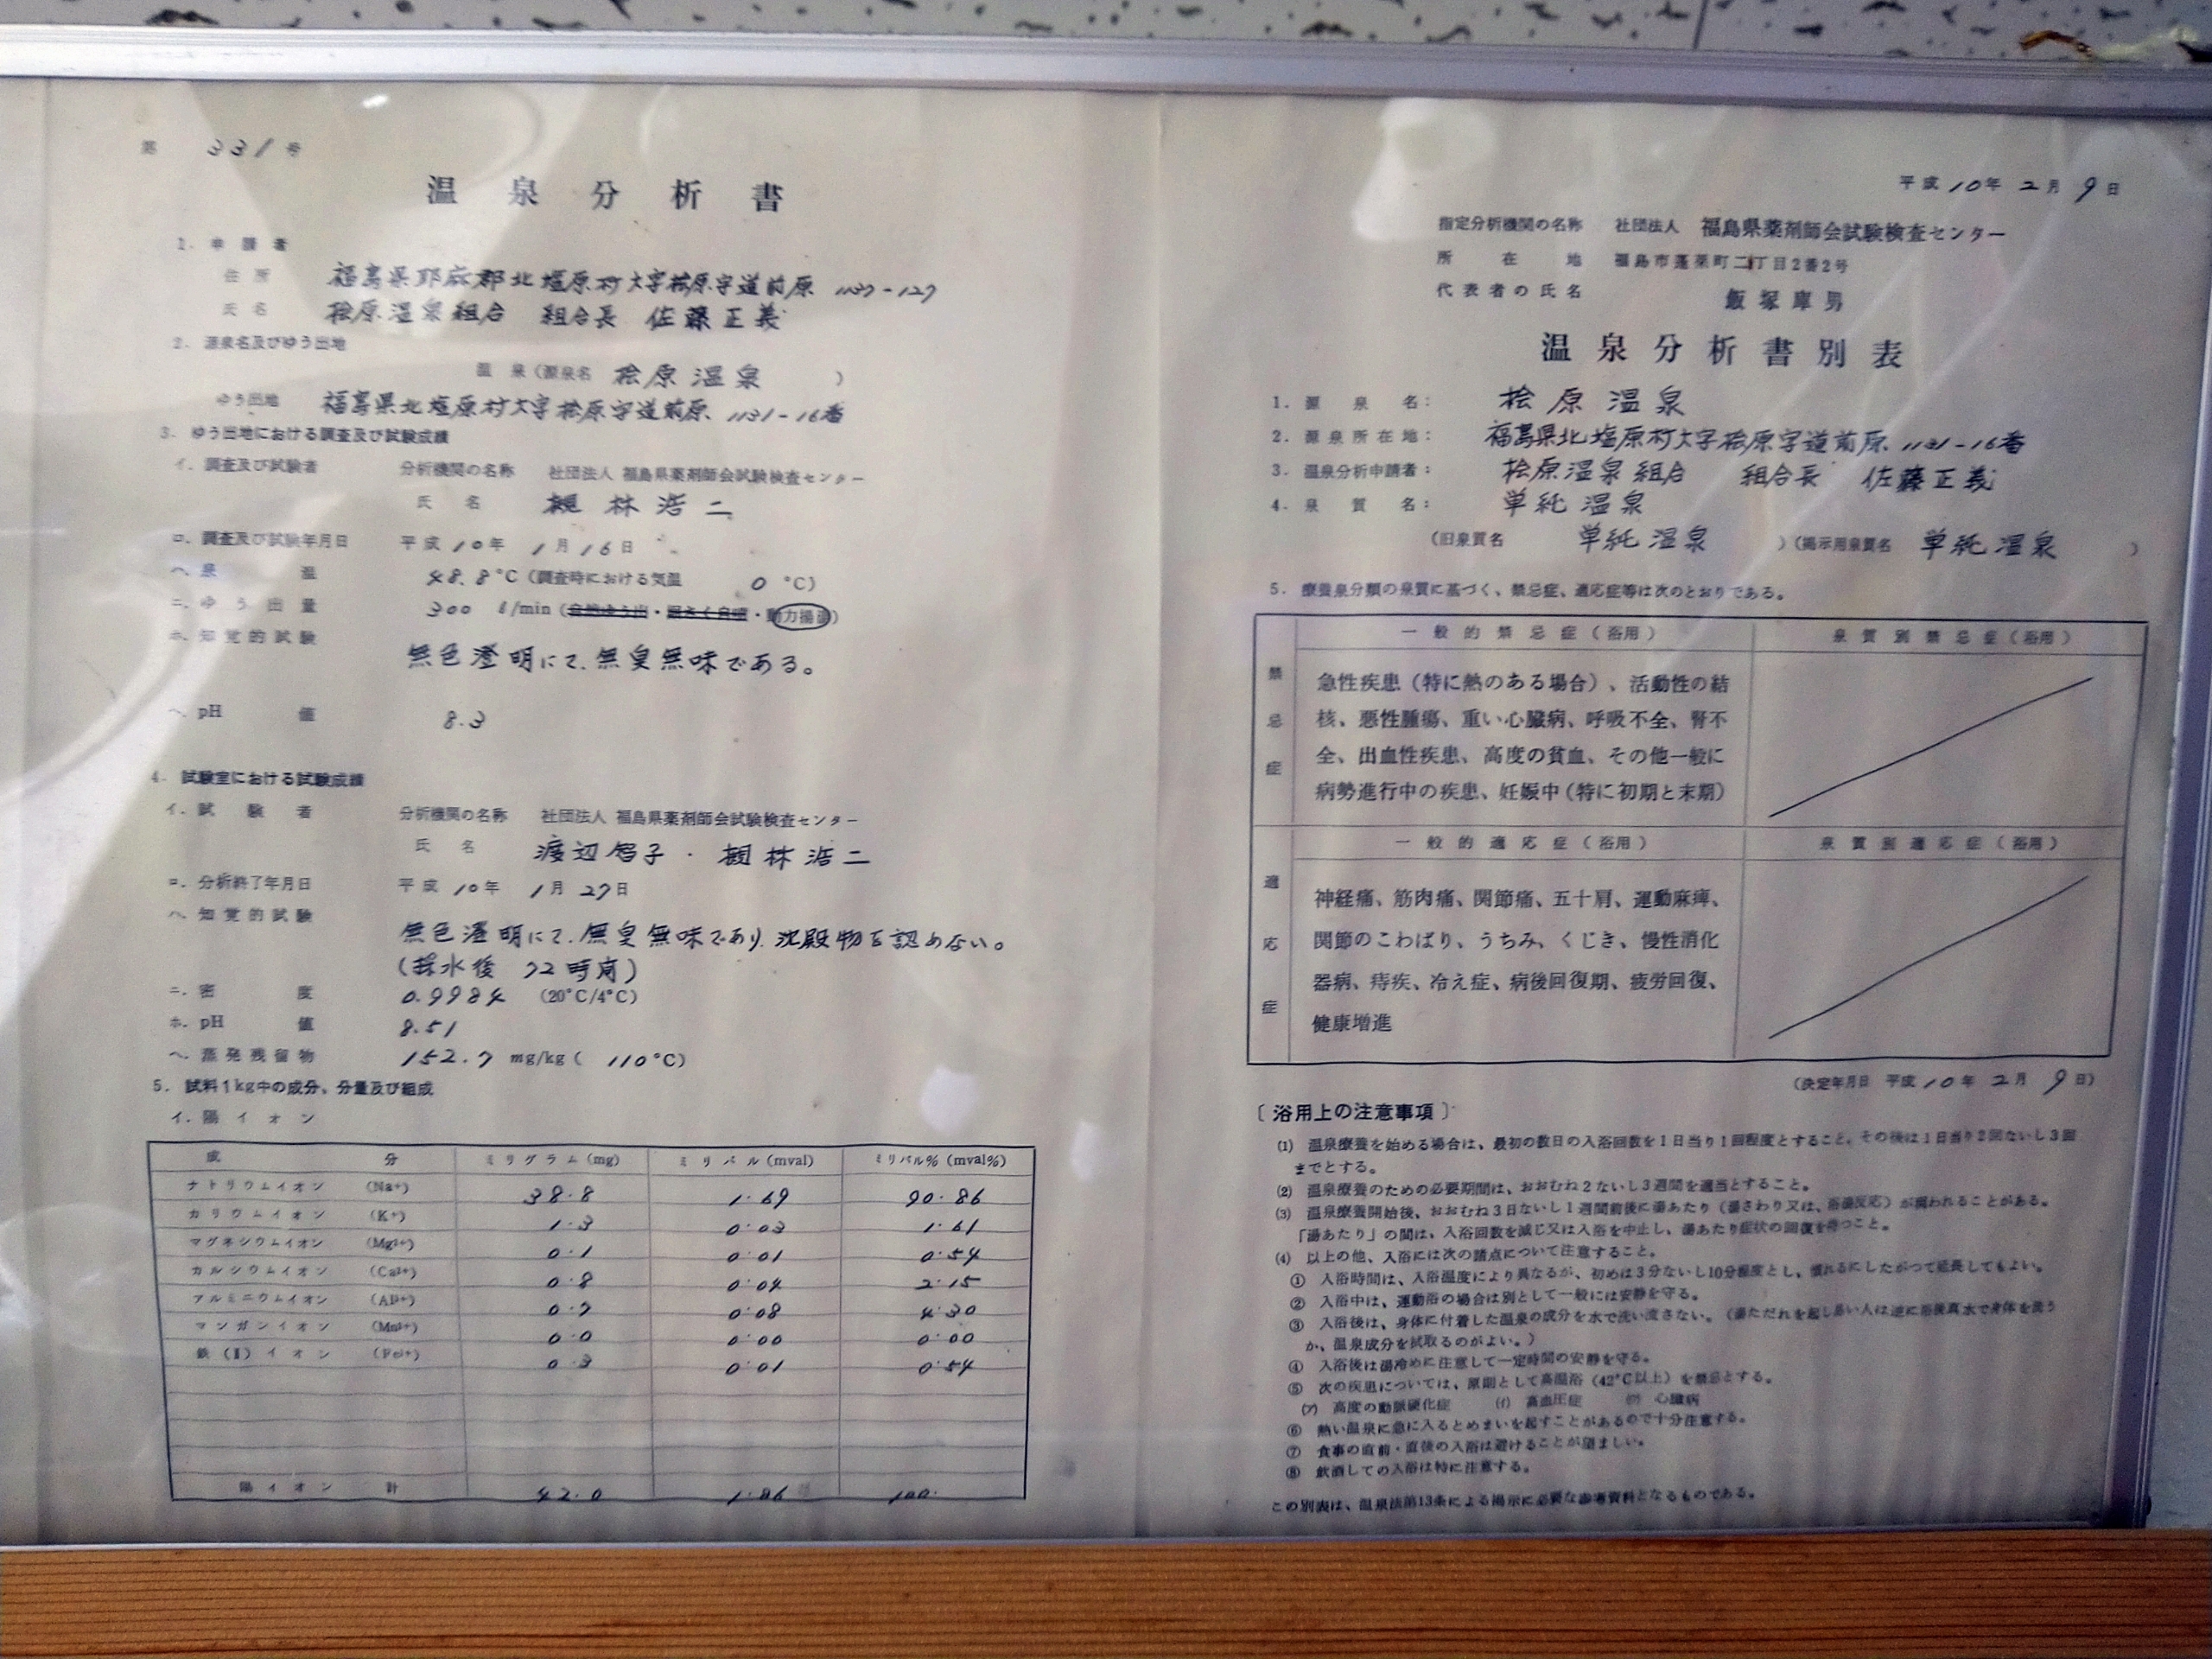 第 331 号
温泉分析書
1. 申請者
住所 福島県耶麻郡北塩原村大字桧原字道前原 1137-127
氏名 桧原温泉組合 組合長 佐藤正義
2. 源泉名及びゆう出地
温泉(源泉名 桧原温泉 )
ゆう出地 福島県北塩原村大字桧原字道前原 1131-16番
3. ゆう出地における調査及び試験成績
イ. 調査及び試験者 分析機関の名称 社団法人 福島県薬剤師会試験検査センター
氏名 槻林浩二
ロ. 調査及び試験年月日 平成10年 1月16日
ハ. 泉温 48.8℃ (調査時における気温 0 ℃)
ニ. ゆう出量 300 ℓ/min (自然ゆう出・掘さく自噴・動力揚湯)
ホ. 知覚的試験
無色澄明にて、無臭無味である。
ヘ. pH値 8.3
4. 試験室における試験成績
イ. 試験者 分析機関の名称 社団法人 福島県薬剤師会試験検査センター
氏名 渡辺 子・槻林浩二
ロ. 分析終了年月日 平成10年 1月27日
ハ. 知覚的試験
無色澄明にて、無臭無味であり、沈殿物を認めない。
(採水後 72時間)
ニ. 密度 0.9984 (20℃/4℃)
ホ. pH値 8.51
ヘ. 蒸発残留物 152.7 mg/kg ( 110℃)
5. 試料1kg中の成分、分量及び組成
イ. 陽イオン
成分 ミリグラム(mg) ミリバル(mval) ミリバル%(mval%)
ナトリウムイオン (Na+) 38.8 1.69 90.86
カリウムイオン (K+) 1.3 0.03 1.61
マグネシウムイオン (Mg2+) 0.1 0.01 0.54
カルシウムイオン (Ca2+) 0.8 0.04 2.15
アルミニウムイオン (Al3+) 0.7 0.08 4.30
マンガンイオン (Mn2+) 0.0 0.00 0.00
鉄(Ⅱ)イオン (Fe2+) 0.3 0.01 0.54
陽イオン計 42.0 1.86 100.
平成10年 2月 9日
指定分析機関の名称 社団法人 福島県薬剤師会試験検査センター
所在地 福島市蓬莱町二丁目2番2号
代表者の氏名 飯塚庫男
温泉分析書別表
1. 源泉名: 桧原温泉
2. 源泉所在地: 福島県北塩原村大字桧原字道前原 1131-16番
3. 温泉分析申請者: 桧原温泉組合 組合長 佐藤正義
4. 泉質名: 単純温泉
(旧泉質名 単純温泉 )(掲示用泉質名 単純温泉 )
5. 療養泉分類の泉質に基づく、禁忌症、適応症等は次のとおりである。
禁忌症
一般的禁忌症(浴用) 泉質別禁忌症(浴用)
急性疾患(特に熱のある場合)、活動性の結
核、悪性腫瘍、重い心臓病、呼吸不全、腎不
全、出血性疾患、高度の貧血、その他一般に
病勢進行中の疾患、妊娠中(特に初期と末期)
適応症
一般的適応症(浴用) 泉質別適応症(浴用)
神経痛、筋肉痛、関節痛、五十肩、運動麻痺、
関節のこわばり、うちみ、くじき、慢性消化
器病、痔疾、冷え症、病後回復期、疲労回復、
健康増進
(決定年月日 平成10年 2月 9日)
〔浴用上の注意事項〕
(1) 温泉療養を始める場合は、最初の数日の入浴回数を1日当り1回程度とすること。その後は1日当り2回ないし3回
までとする。
(2) 温泉療養のための必要期間は、おおむね2ないし3週間を適当とすること。
(3) 温泉療養開始後、おおむね3日ないし1週間前後に湯あたり(湯さわり又は、浴湯反応)が現われることがある。
「湯あたり」の間は、入浴回数を減じ又は入浴を中止し、湯あたり症状の回復を待つこと。
(4) 以上の他、入浴には次の諸点について注意すること。
① 入浴時間は、入浴温度により異なるが、初めは3分ないし10分程度とし、慣れるにしたがつて延長してもよい。
② 入浴中は、運動浴の場合は別として一般には安静を守る。
③ 入浴後は、身体に付着した温泉の成分を水で洗い流さない。(湯ただれを起し易い人は逆に浴後真水で身体を洗う
か、温泉成分を拭取るのがよい。)
④ 入浴後は湯冷めに注意して一定時間の安静を守る。
⑤ 次の疾患については、原則として高温浴(42℃以上)を禁忌とする。
(ア) 高度の動脈硬化症 (イ) 高血圧症 (ウ) 心臓病
⑥ 熱い温泉に急に入るとめまいを起すことがあるので十分注意する。
⑦ 食事の直前・直後の入浴は避けることが望ましい。
⑧ 飲酒しての入浴は特に注意する。
この別表は、温泉法第13条による掲示に必要な参考資料となるものである。